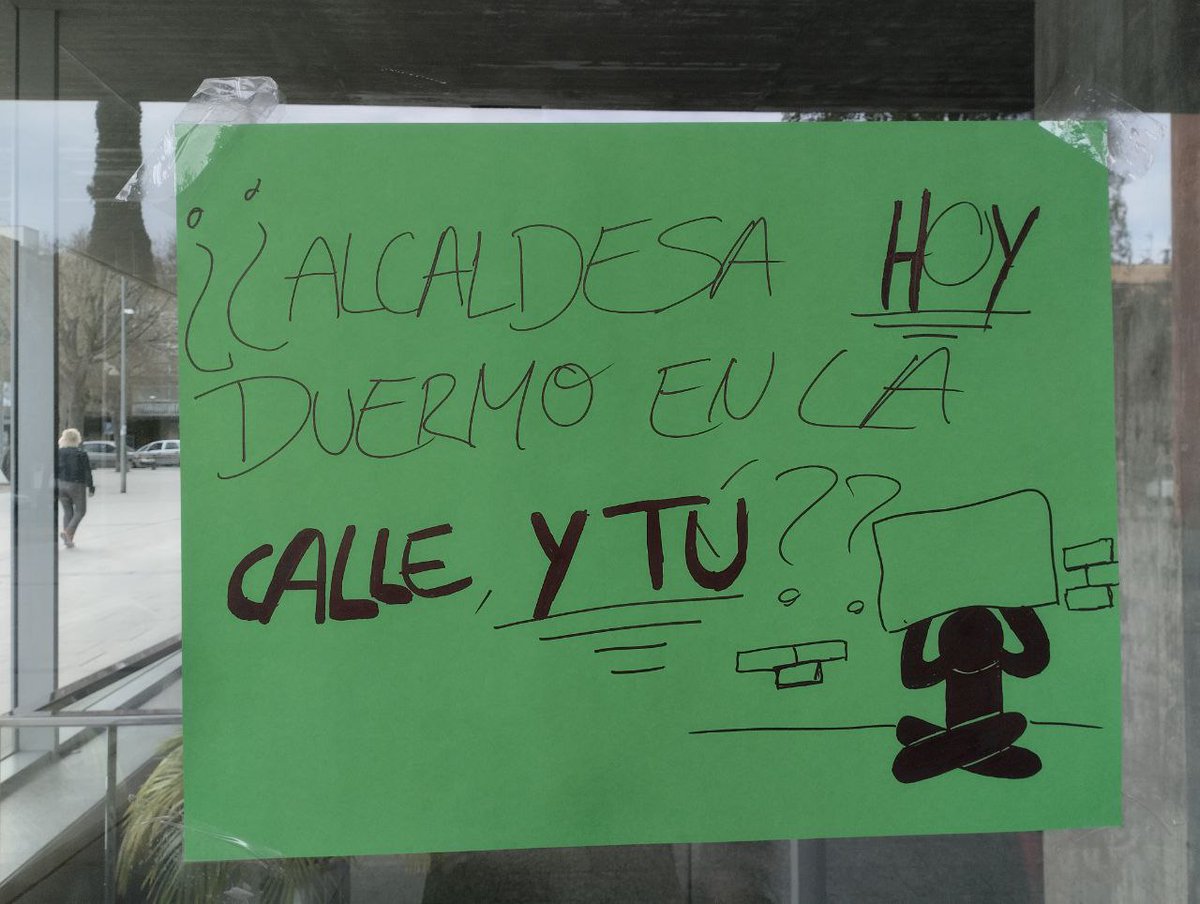 ¿¿ALCALDESA HOY
DUERMO EN LA
CALLE, Y TÚ??